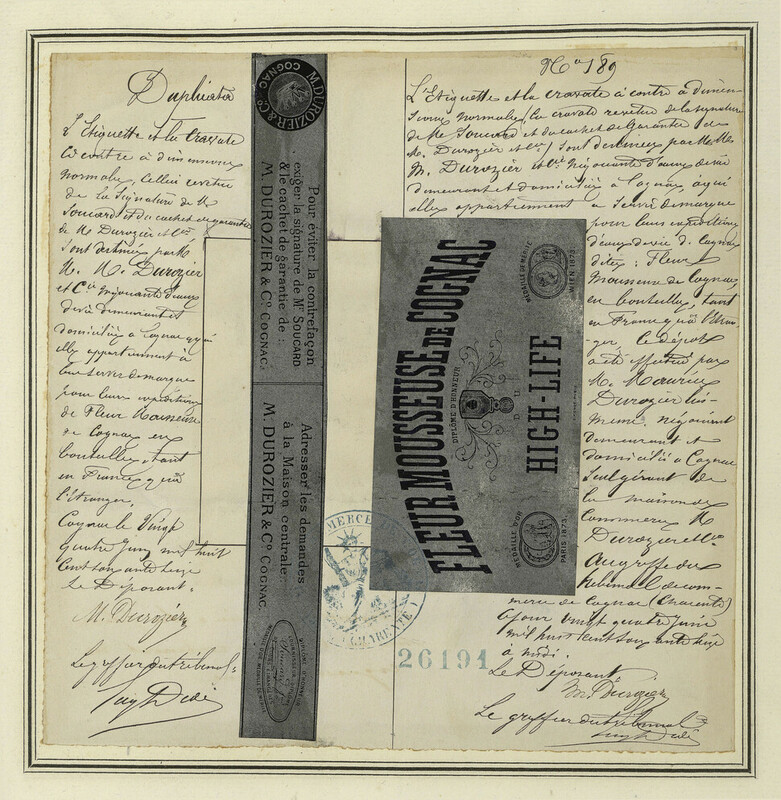 Duplicata
L'Etiquette et la Cravate
ci contre à dimensions
normale, celle ci revetue
de la Signature de Mr
Soucard et du cachet de garantie
de M. Durozier et Cie
sont destinées par M.
M. M. Durozier
et Cie négociants d'eaux
de vie demeurant et
domiciliés à Cognac à qui
elles appartiennent à
servir de marque
pour leurs expéditions
de Fleur Mousseuse
de Cognac en
bouteilles, tant
en France qu'à
l'étranger.
Cognac le Vingt
quatre Juin mil huit
cent soixante seize
Le Déposant.
M. Durozier
Le greffier du tribunal.
M. DUROZIER & Co
COGNAC
Pour éviter la contrefaçon
exiger la signature de Mr SOUCARD
& le cachet de garantie de:
M. DUROZIER & Co COGNAC.
Adresser les demandes
à la Maison centrale:
M. DUROZIER & Co COGNAC.
FLEUR MOUSSEUSE DE COGNAC
DIPLÔME D'HONNEUR
DU
HIGH-LIFE
MÉDAILLE DE MÉRITE
WIEN 1873.
MÉDAILLE D'OR
PARIS 1873.
26191
No 189
L'Etiquette et la cravate ci contre à dimen-
sions normales, la cravate revetue de la signature
de Mr Soucard et du cachet de Garantie de
M. Durozier et Cie, sont destinées par MM.
M. Durozier et Cie négociants d'eaux de vie
demeurant et domiciliés à Cognac, à qui
elles appartiennent à servir de marque
pour leurs expéditions
d'eaux de vie de Cognac
dites: Fleur
Mousseuse de Cognac,
en bouteilles, tant
en France qu'à l'étran-
ger, le dépôt
a été effectué par
M. Maurice
Durozier lui
même, négociant
demeurant et
domicilié à Cognac
seul gérant de
la maison de
Commerce M
Durozier et Cie
au greffe du
tribunal de com-
merce de Cognac (Charente)
ce jour vingt quatre Juin
mil huit cent soixante seize
à midi.
Le Déposant
M. Durozier
Le greffier du tribunal